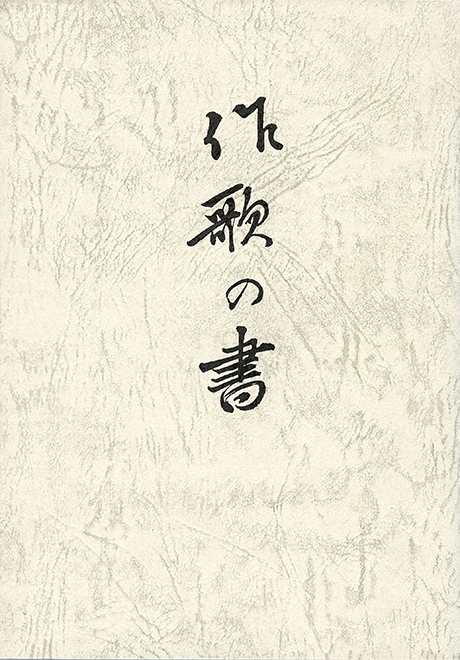 作歌の書